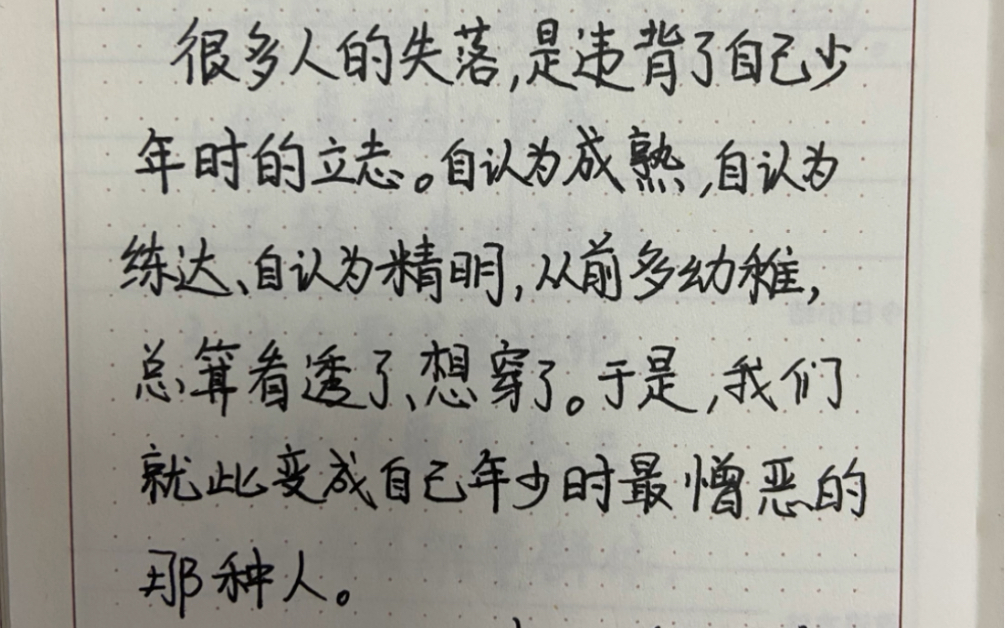 很多人的失落,是违背了自己少
年时的立志。自认为成熟,自认为
练达、自认为精明,从前多幼稚,
总算看透了、想穿了。于是,我们
就此变成自己年少时最憎恶的
那种人。